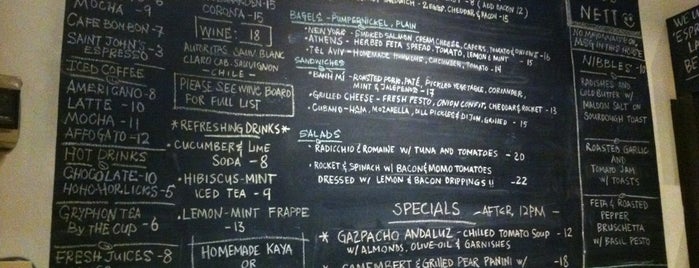 MOCHA -
CAFE BON BON - 7
SAINT JOHN'S
ESPRESSO
ICED COFFEE
AMERICANO - 8
LATTE - 10
MOCHA - 11
AFFOGATO - 12
HOT DRINKS
CHOCOLATE - 10
HOHO HOR.LICKS - 5
GRYPHON TEA
BY THE CUP - 6
FRESH JUICES - 8
CORONA - 15
WINE: 18
AUTORITAS SAUV BLANC
CLARO CAB. SAUVIGNON
- CHILE -
PLEASE SEE WINE BOARD
FOR FULL LIST
*REFRESHING DRINKS*
• CUCUMBER & LIME
SODA - 8
• HIBISCUS-MINT
ICED TEA - 9
• LEMON-MINT FRAPPE
- 13
HOMEMADE KAYA
OR
(ADD BACON 12)
BACON - 15
BAGELS - PUMPERNICKEL, PLAIN
• NEW YORK - SMOKED SALMON, CREAM CHEESE, CAPERS, TOMATO & ONIONS - 16
• ATHENS - HERBED FETA SPREAD, TOMATO, LEMON & MINT - 15
• TEL AVIV - HOMEMADE HUMMUS, CUCUMBER, TOMATO - 14
SANDWICHES
• BANH MI - ROASTED PORK, PATÉ, PICKLED VEGETABLE, CORIANDER,
MINT & JALEPENOS - 17
• GRILLED CHEESE - FRESH PESTO, ONION CONFIT, CHEDDAR & ROCKET - 13
• CUBANO - HAM, MOZARELLA, DILL PICKLES & DIJON, GRILLED - 15
SALADS
• RADICCHIO & ROMAINE W/ TUNA AND TOMATOES - 20
• ROCKET & SPINACH W/ BACON & MOMO TOMATOES
DRESSED W/ LEMON & BACON DRIPPINGS !! - 22
SPECIALS - AFTER 12PM -
* GAZPACHO ANDALUZ - CHILLED TOMATO SOUP - 12
W/ ALMONDS, OLIVE-OIL & GARNISHES
* CAMEMBERT & GRILLED PEAR PANINI W/
NETT
NIBBLES -
- 10 -
RADISHES AND
COLD BUTTER W/
MALDON SALT ON
SOURDOUGH TOAST
ROASTED GARLIC
AND
TOMATO JAM
W/ TOASTS
FETA & ROASTED
PEPPER
BRUSCHETTA
W/ BASIL PESTO